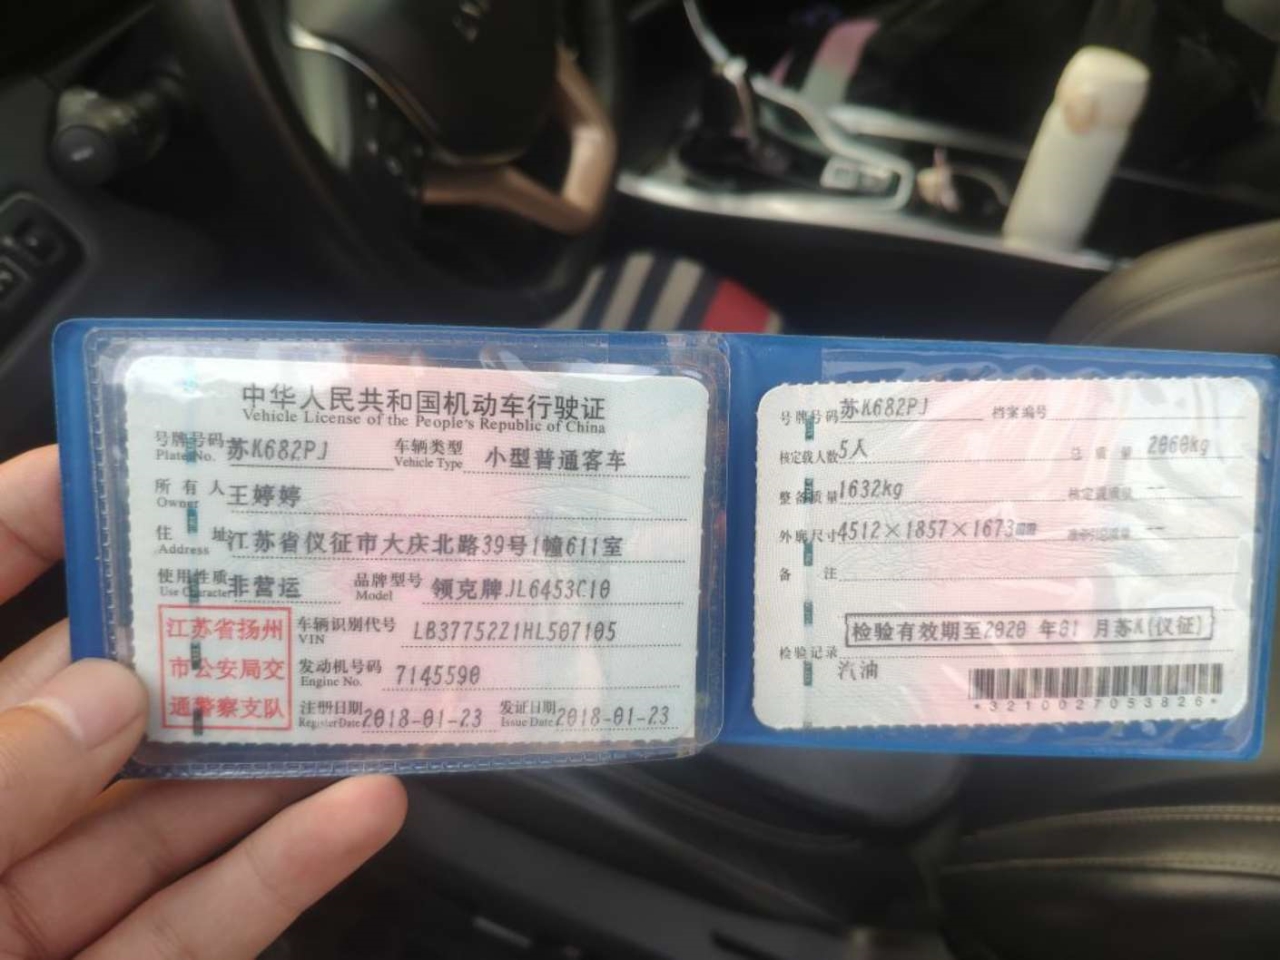 中华人民共和国机动车行驶证
Vehicle License of the People's Republic of China
号牌号码 苏K682PJ 车辆类型 小型普通客车
Plate No. Vehicle Type
所有人 王婷婷
Owner
住址 江苏省仪征市大庆北路39号1幢611室
Address
使用性质 非营运 品牌型号 领克牌JL6453C10
Use Character Model
江苏省扬州
市公安局交
通警察支队
车辆识别代号 LB37752Z1HL507105
VIN
发动机号码 7145590
Engine No.
注册日期 2018-01-23 发证日期 2018-01-23
Register Date Issue Date
号牌号码 苏K682PJ 档案编号
核定载人数 5人 总质量 2060kg
整备质量 1632kg 核定载质量 --
外廓尺寸 4512×1857×1673mm 准牵引总质量 --
备注
检验有效期至2020年01月苏K(仪征)
检验记录
汽油
*3210027053826*